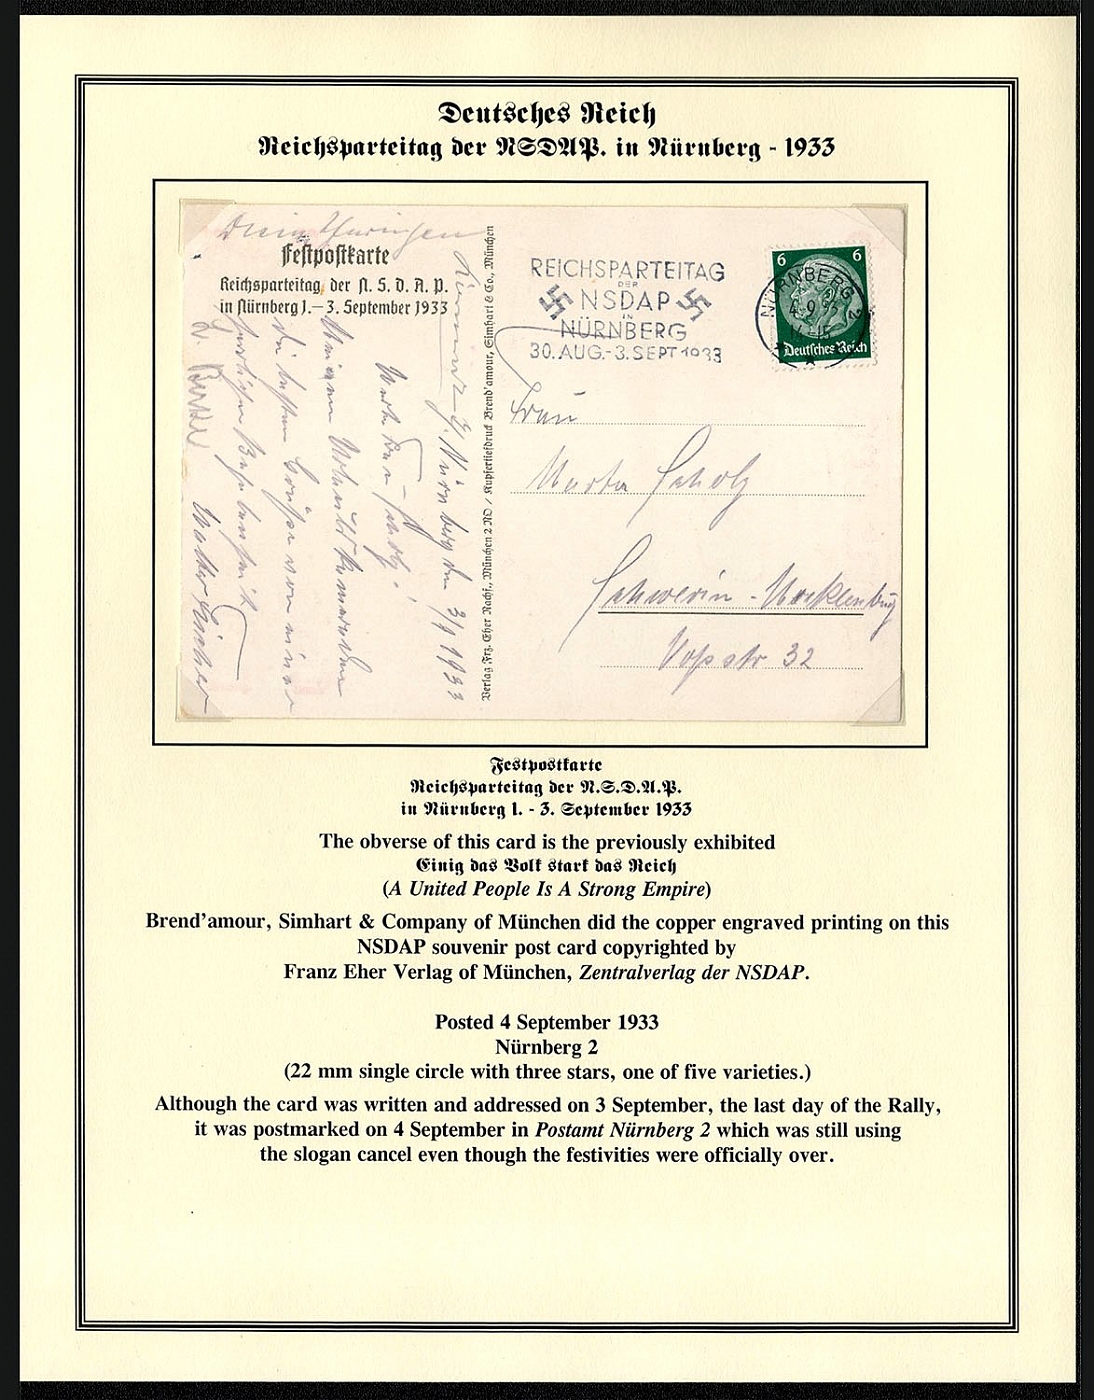 Deutsches Reich
Reichsparteitag der NSDAP. in Nürnberg - 1933
Festpostkarte
Reichsparteitag der N. S. D. A. P.
in Nürnberg 1.—3. September 1933
Nürnberg den 3/9 1933
Verlag Frz. Eher Nachf., München 2 NO / Kupfertiefdruck Brend'amour, Simhart & Co., München
REICHSPARTEITAG
DER
NSDAP
IN
NÜRNBERG
30. AUG.-3. SEPT 1933
6 6
NÜRNBERG 2
4. 9.
Deutsches Reich
Frau
Marta Scholz
Schwerin - Mecklenburg
Voßstr 32
Festpostkarte
Reichsparteitag der N.S.D.A.P.
in Nürnberg 1. - 3. September 1933
The obverse of this card is the previously exhibited
Einig das Volk stark das Reich
(A United People Is A Strong Empire)
Brend'amour, Simhart & Company of München did the copper engraved printing on this
NSDAP souvenir post card copyrighted by
Franz Eher Verlag of München, Zentralverlag der NSDAP.
Posted 4 September 1933
Nürnberg 2
(22 mm single circle with three stars, one of five varieties.)
Although the card was written and addressed on 3 September, the last day of the Rally,
it was postmarked on 4 September in Postamt Nürnberg 2 which was still using
the slogan cancel even though the festivities were officially over.